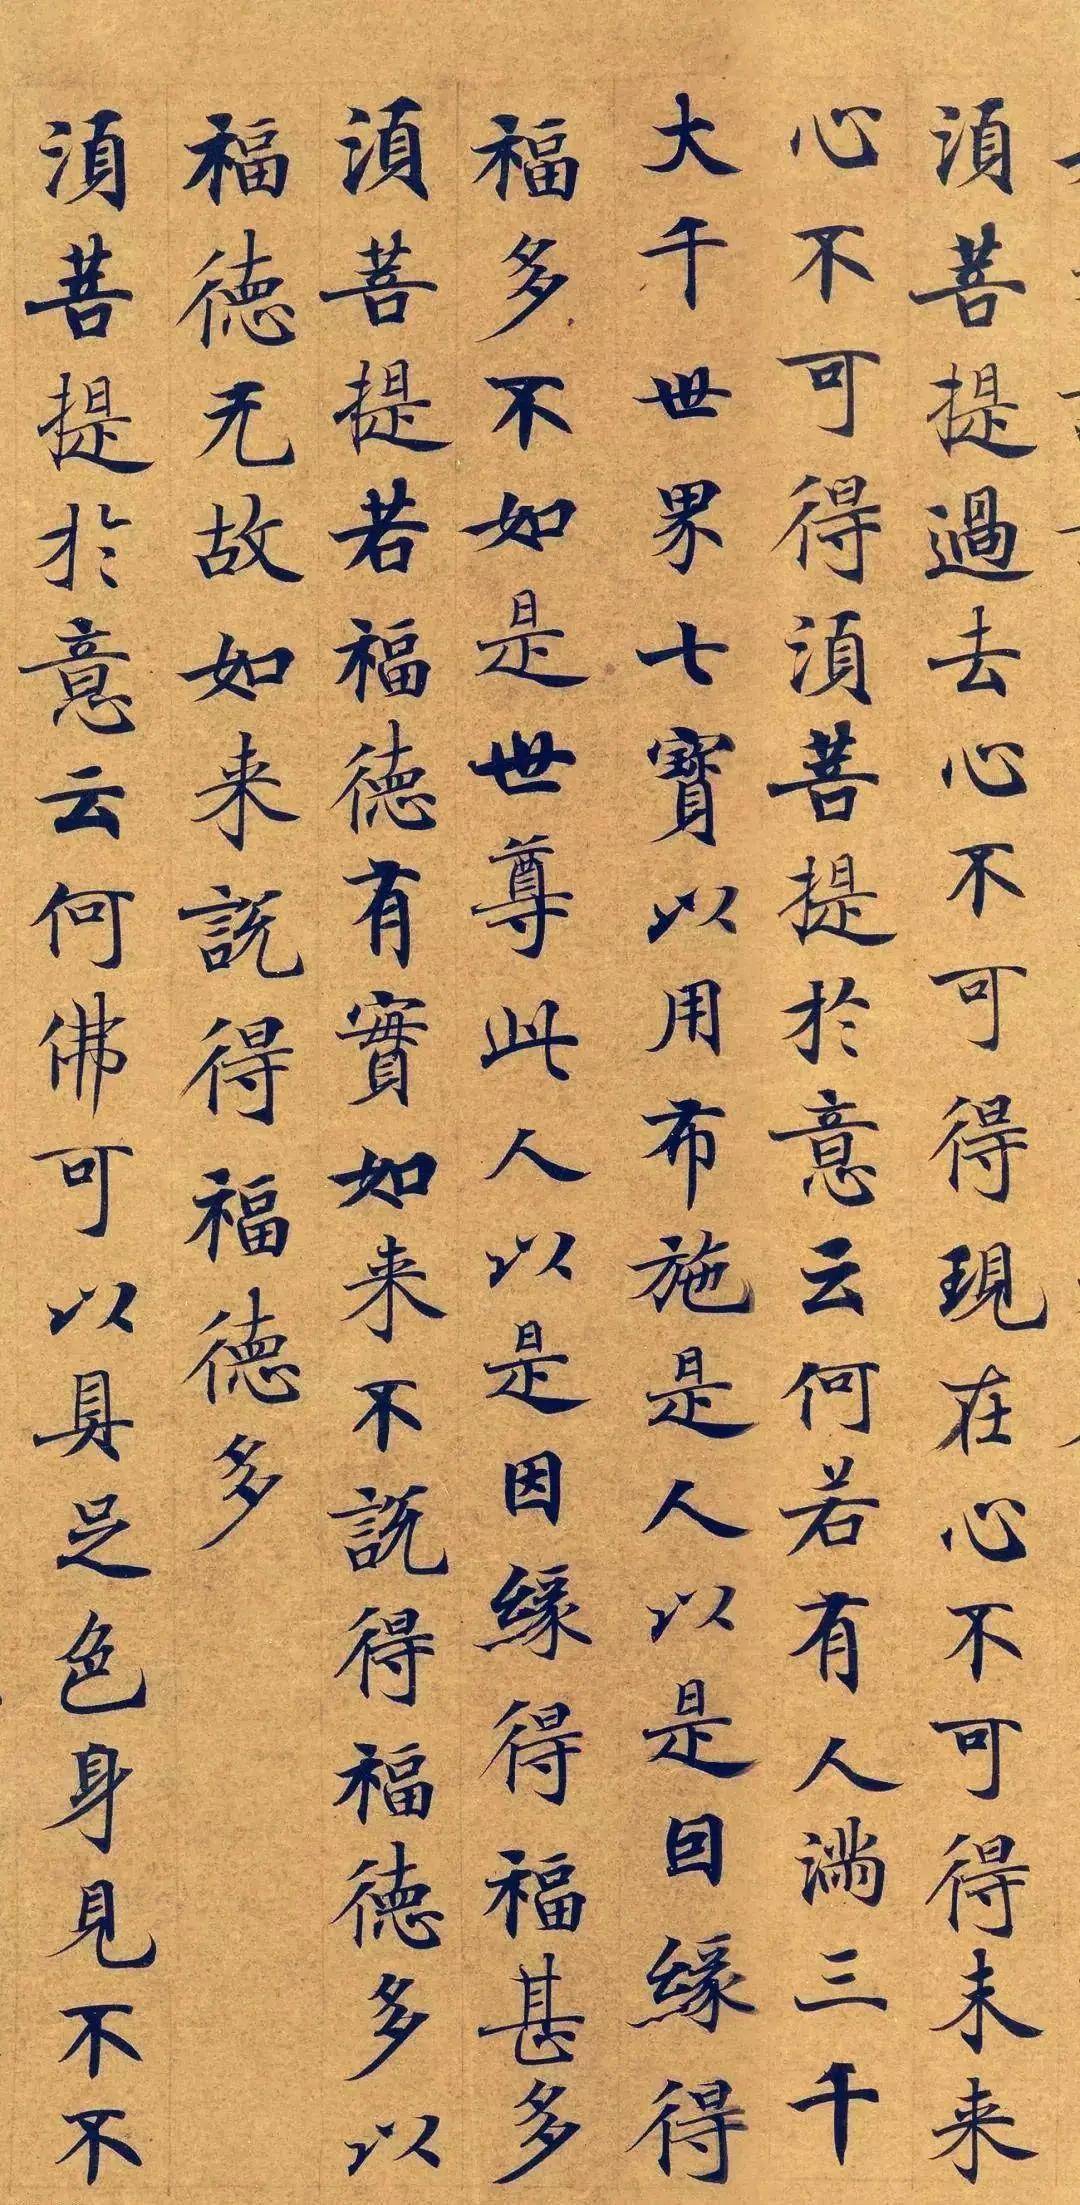 須菩提過去心不可得現在心不可得未来
心不可得須菩提於意云何若有人滿三千
大千世界七寶以用布施是人以是因緣得
福多不如是世尊此人以是因緣得福甚多
須菩提若福德有實如来不說得福德多以
福德无故如来說得福德多
須菩提於意云何佛可以具足色身見不不